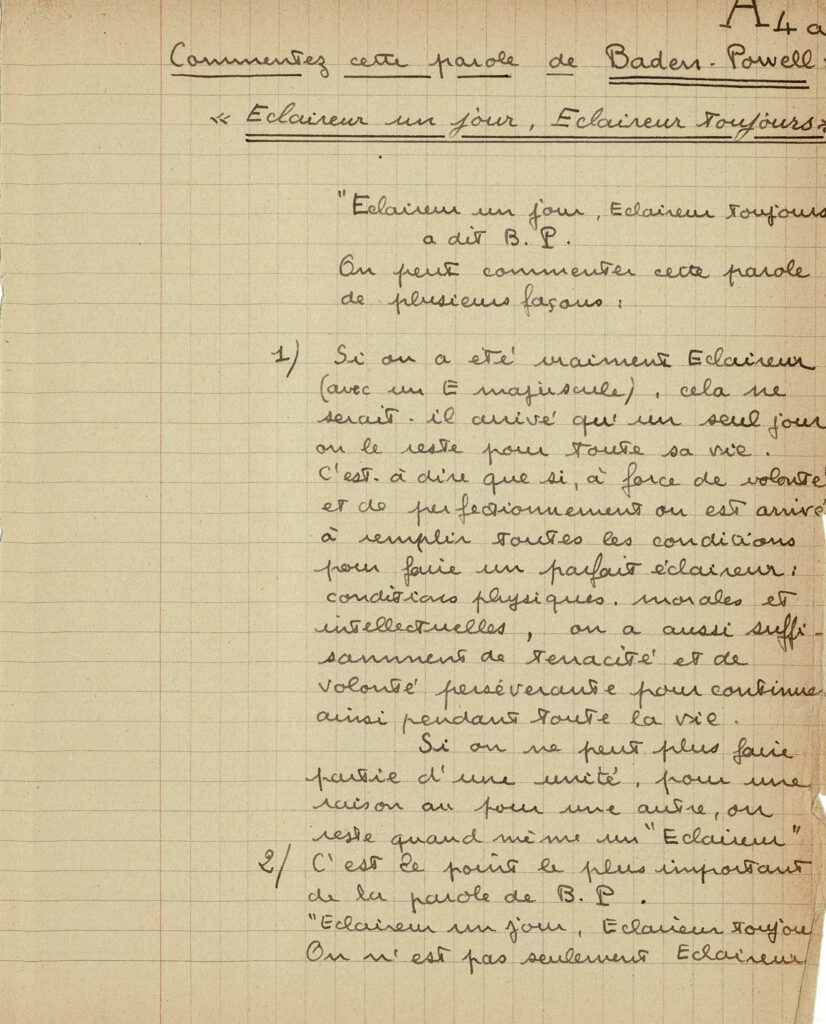 A4a
Commentez cette parole de Baden-Powell.
« Eclaireur un jour, Eclaireur toujours»
"Eclaireur un jour, Eclaireur toujours
a dit B. P.
On peut commenter cette parole
de plusieurs façons :
1) Si on a été vraiment Eclaireur
(avec un E majuscule), cela ne
serait-il arrivé qu'un seul jour
on le reste pour toute sa vie.
C'est-à dire que si, à force de volonté
et de perfectionnement on est arrivé
à remplir toutes les conditions
pour faire un parfait éclaireur :
conditions physiques. morales et
intellectuelles, on a aussi suffi-
samment de tenacité et de
volonté persévérante pour continue
ainsi pendant toute la vie.
Si on ne peut plus faire
partie d'une unité, pour une
raison ou pour une autre, on
reste quand même un "Eclaireur"
2/ C'est le point le plus important
de la parole de B. P.
"Eclaireur un jour, Eclaireur toujou
On n'est pas seulement Eclaireur